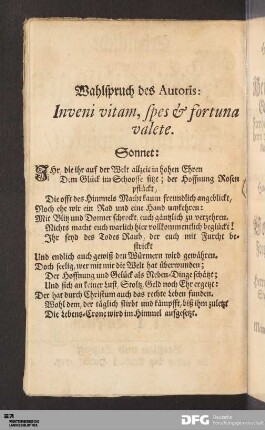 Wahlspruch des Autoris:
Inveni vitam, spes & fortuna
valete.
Sonnet:
IHr, die ihr auf der Welt allzeit in hohen Ehren
Dem Glück im Schoosse sitzt; der Hoffnung Rosen
pflückt,
Die offt des Himmels Macht kaum freundlich angeblickt,
Noch ehe wir ein Rad und eine Hand umkehren:
Mit Blitz und Donner schreckt, euch gäntzlich zu verzehren.
Nichts macht euch warlich hier vollkommentlich beglückt!
Ihr seyd des Todes Raub, der euch mit Furcht be-
strickt
Und endlich auch gewiß den Würmern wird gewähren.
Doch seelig, wer mit mir die Welt hat überwunden;
Der Hoffnung und Gelück als Neben-Dinge schätzt;
Und sich an keiner Lust, Stoltz, Geld noch Ehr ergetzt:
Der hat durch Christum auch das rechte Leben funden.
Wahl dem, der täglich stirbt und kämpfft, biß ihm zuletzt
Die Lebens-Crone wird im Himmel aufgesetzt.
WÜRTTEMBERGISCHE
LANDESBIBLIOTHEK
DFG Deutsche
Forschungsgemeinschaft